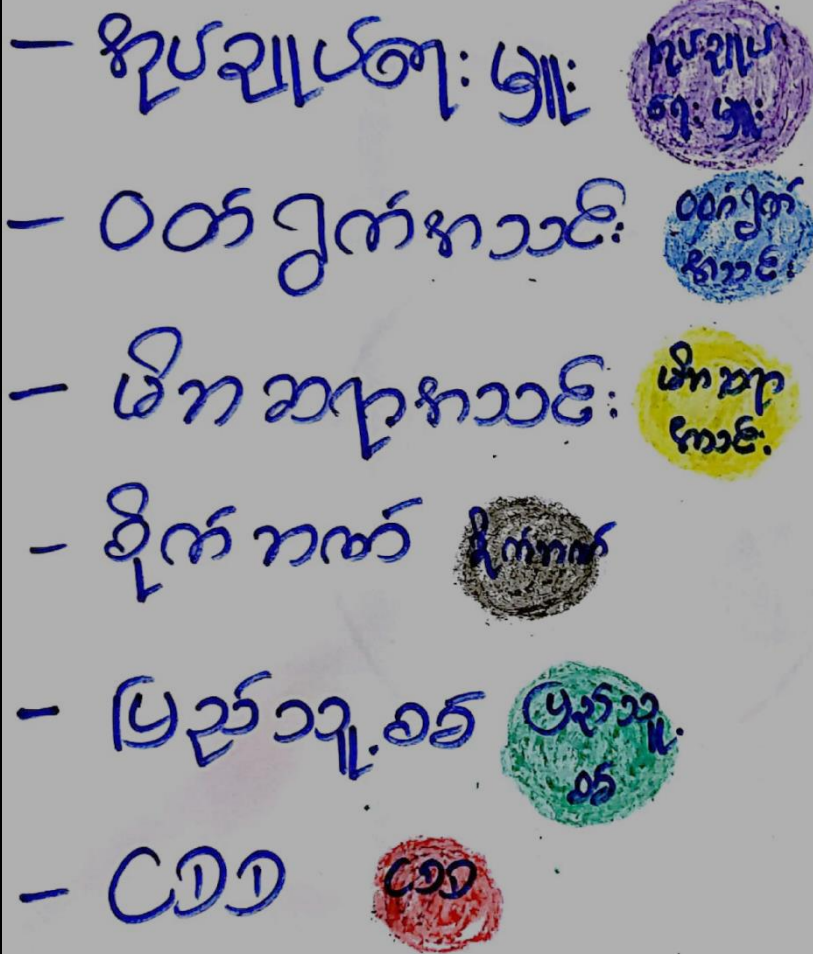 - အုပ်ချုပ်ရေး မှူး
အုပ်ချုပ်
ရေး မှူး
- ဝတ်ရွတ်အသင်း
ဝတ်ရွတ်
အသင်း
- မိဘ ဆရာအသင်း
မိဘ ဆရာ
အသင်း
- စိုက် ဘဏ်
စိုက်ဘဏ်
- ပြည်သူ့ စစ်
ပြည်သူ့
စစ်
- CDD
CDD